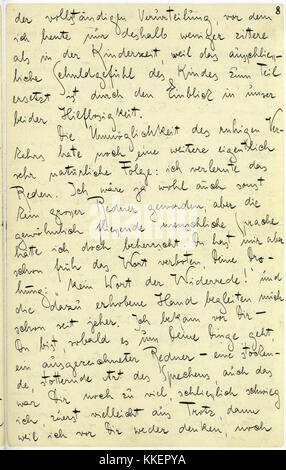 8
der vollständigen Verurteilung, vor dem
ich heute nur deshalb weniger zittere
als in der Kinderzeit, weil das ausschliess-
liche Schuldgefühl des Kindes zum Teil
ersetzt ist durch den Einblick in unser
beider Hilflosigkeit.
Die Unmöglichkeit des ruhigen Ver-
kehrs hatte noch eine weitere eigentlich
sehr natürliche Folge: ich verlernte das
Reden. Ich wäre ja wohl auch sonst
kein grosser Redner geworden, aber die
gewöhnlich fliessende menschliche Sprache
hätte ich doch beherrscht. Du hast mir aber
schon früh das Wort verboten, Deine Dro-
hung: „kein Wort der Widerrede!“ und
die dazu erhobene Hand begleiten mich
schon seit jeher. Ich bekam vor Dir –
Du bist, sobald es um Deine Dinge geht,
ein ausgezeichneter Redner – eine stocken-
de, stotternde Art des Sprechens, auch das
war Dir noch zu viel, schliesslich schwieg
ich, zuerst vielleicht aus Trotz, dann
weil ich vor Dir weder denken, noch
alamy
Image ID: KKEPYA
www.alamy.com